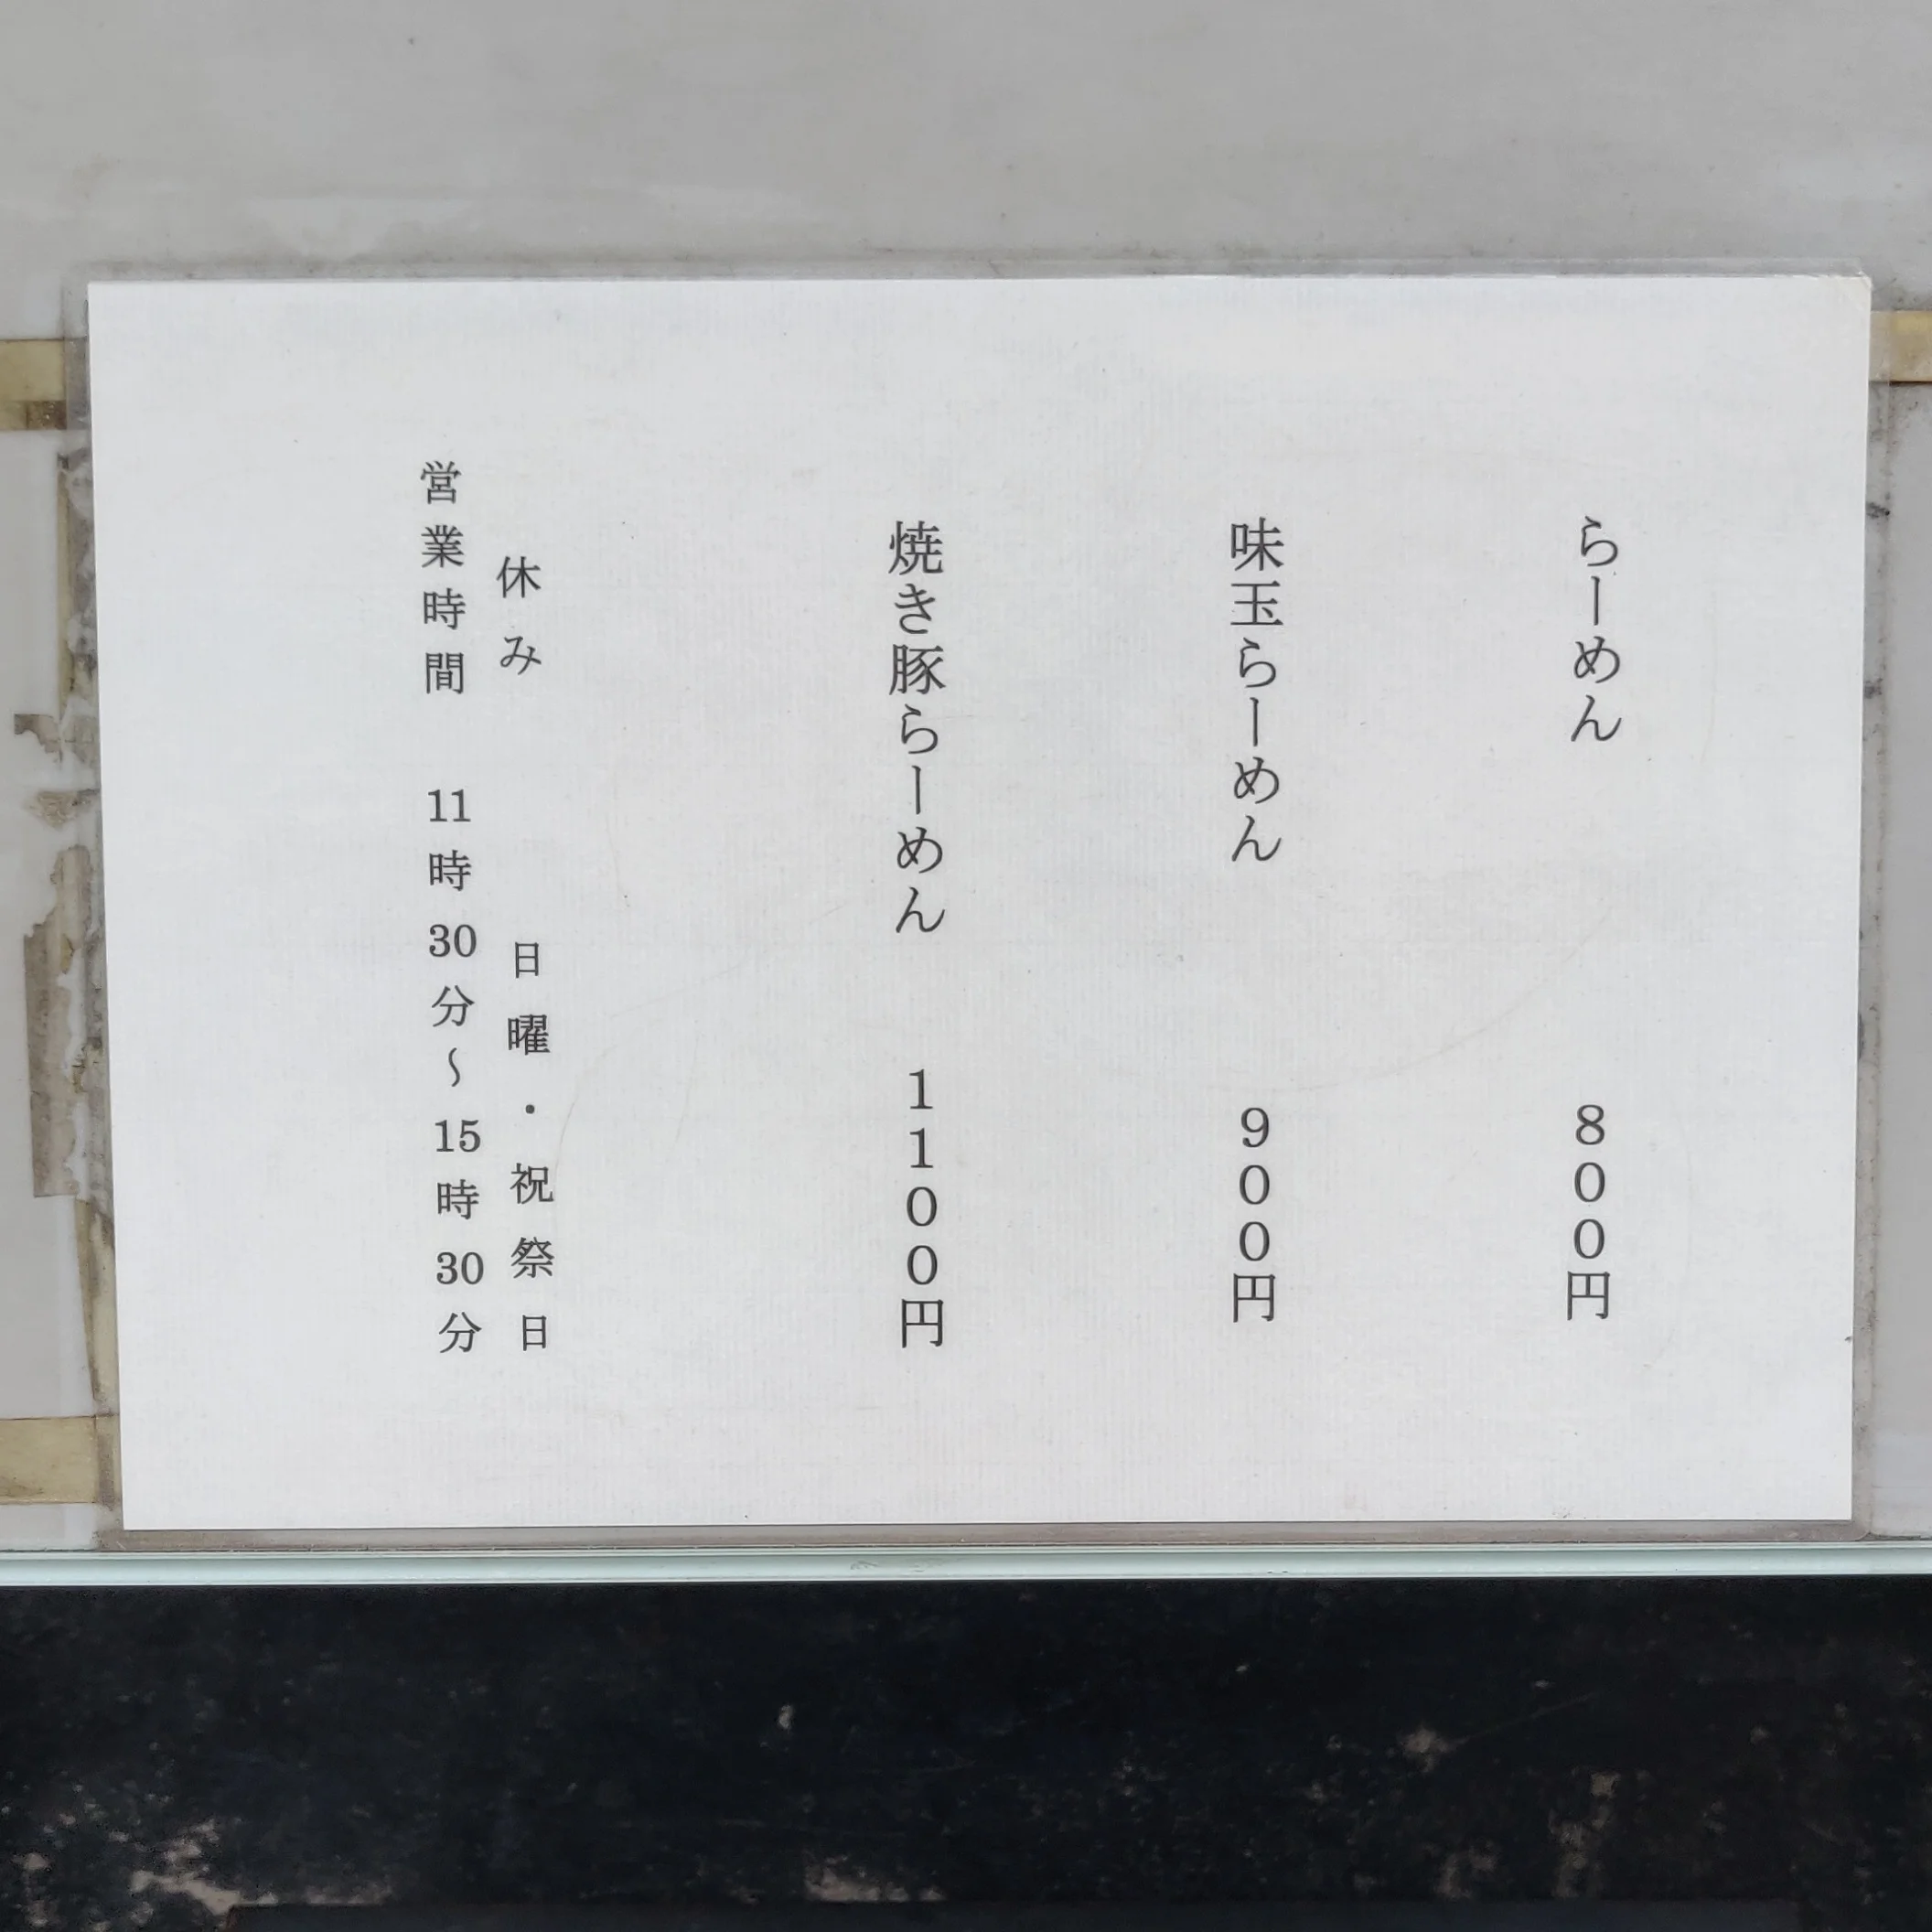 らーめん　８００円
味玉らーめん　９００円
焼き豚らーめん　１１００円
休み　日曜・祝祭日
営業時間　11時30分～15時30分